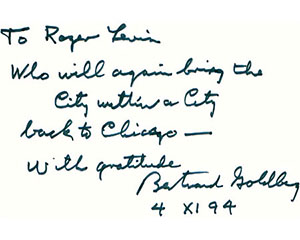 To Roger Levin
Who will again bring the
City within a City
back to Chicago —
with gratitude
Bertrand Goldberg
4 XI 94